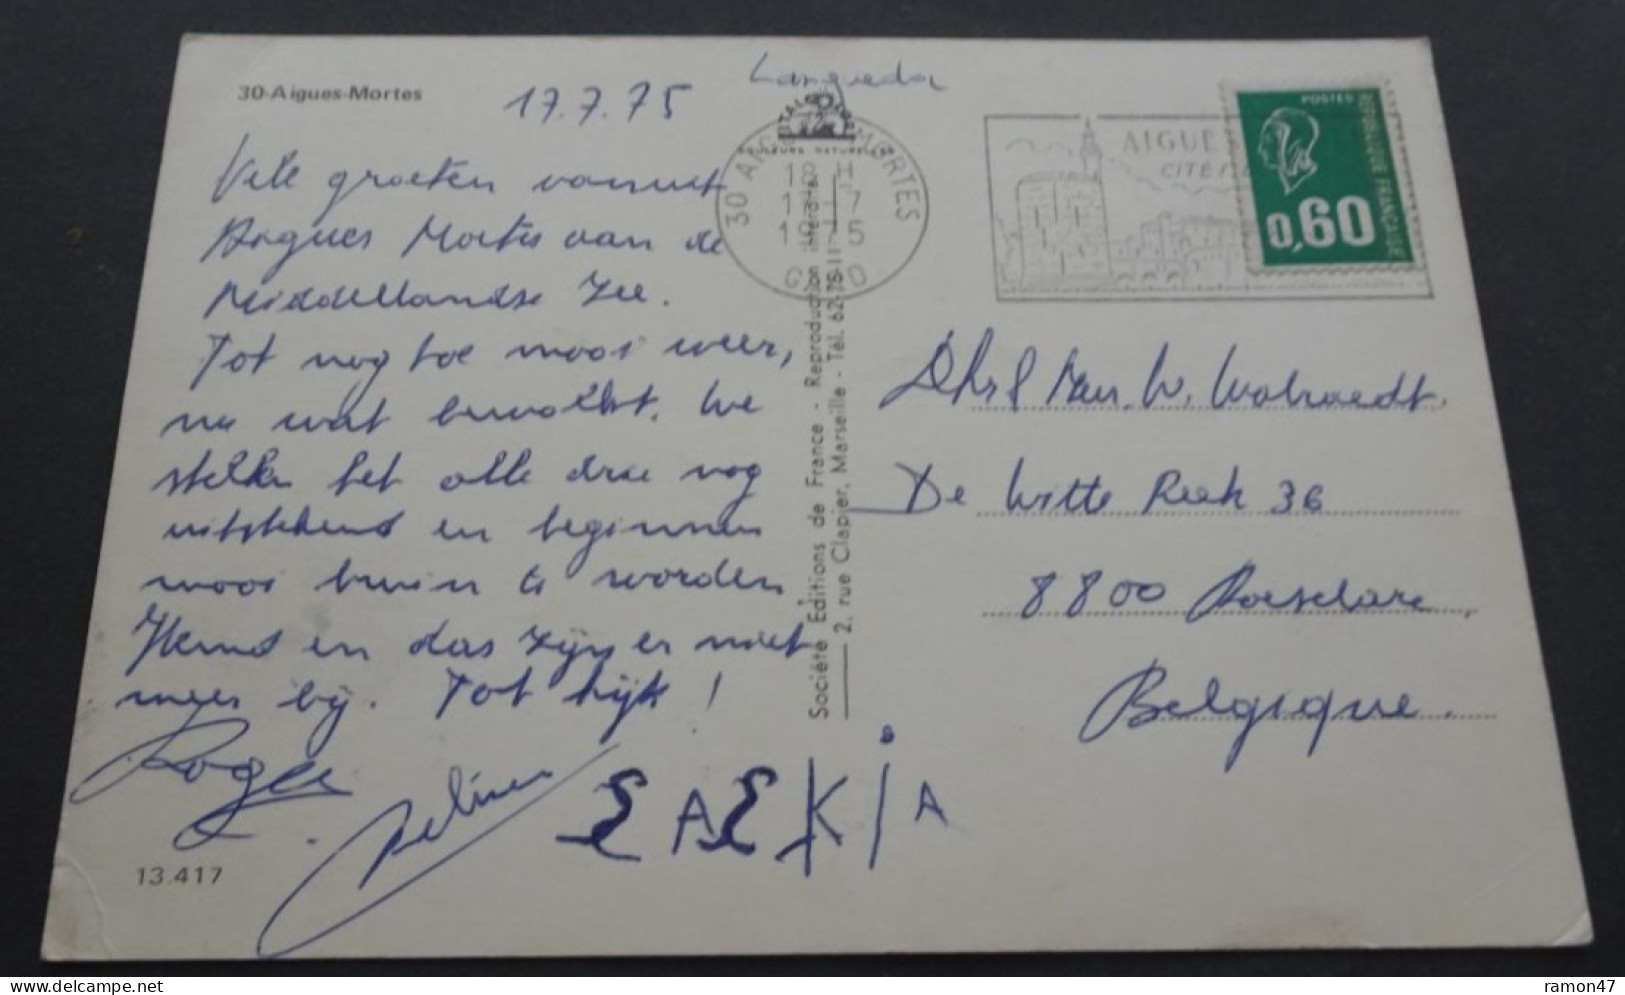 30-Aigues-Mortes
17.7.75
Vele groeten vanuit
Aigues Mortes aan de
Middellandse Zee.
Tot nog toe mooi weer,
nu wat bewolkt. We
stellen het alle drie nog
uitstekend en beginnen
mooi bruin te worden
Hemd en das zijn er niet
meer bij. Tot kijk !
Roger
SASKiA
13.417
COULEURS NATURELLES
Société Editions de France - Reproduction interdite
2, rue Clapier, Marseille - Tél. 62-75-11
30 AIGUES MORTES
18 H
17 7
1975
GARD
AIGUE
CITE
POSTES
REPUBLIQUE FRANÇAISE
0,60
De Witte Reek 36
8800 Roeselare
Belgique.
delcampe.net
ramon47